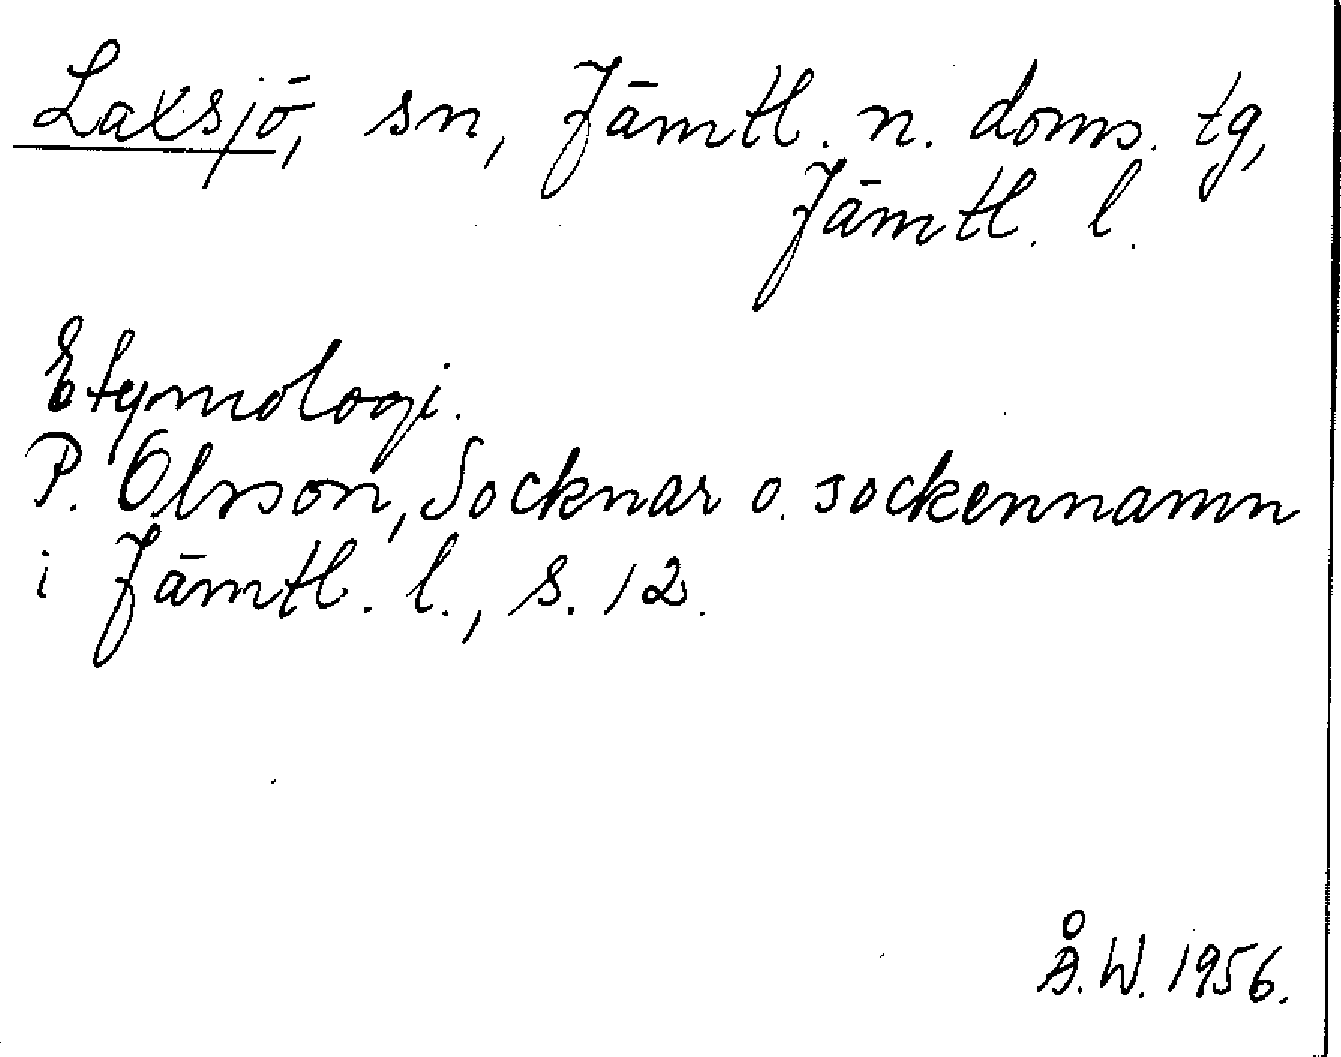 Laxsjö, sn, Jämtl. n. doms. tg,
Jämtl. l.
Etymologi.
P. Olsson, Socknar o. sockennamn
i Jämtl. l., s. 12.
Å.W. 1956.